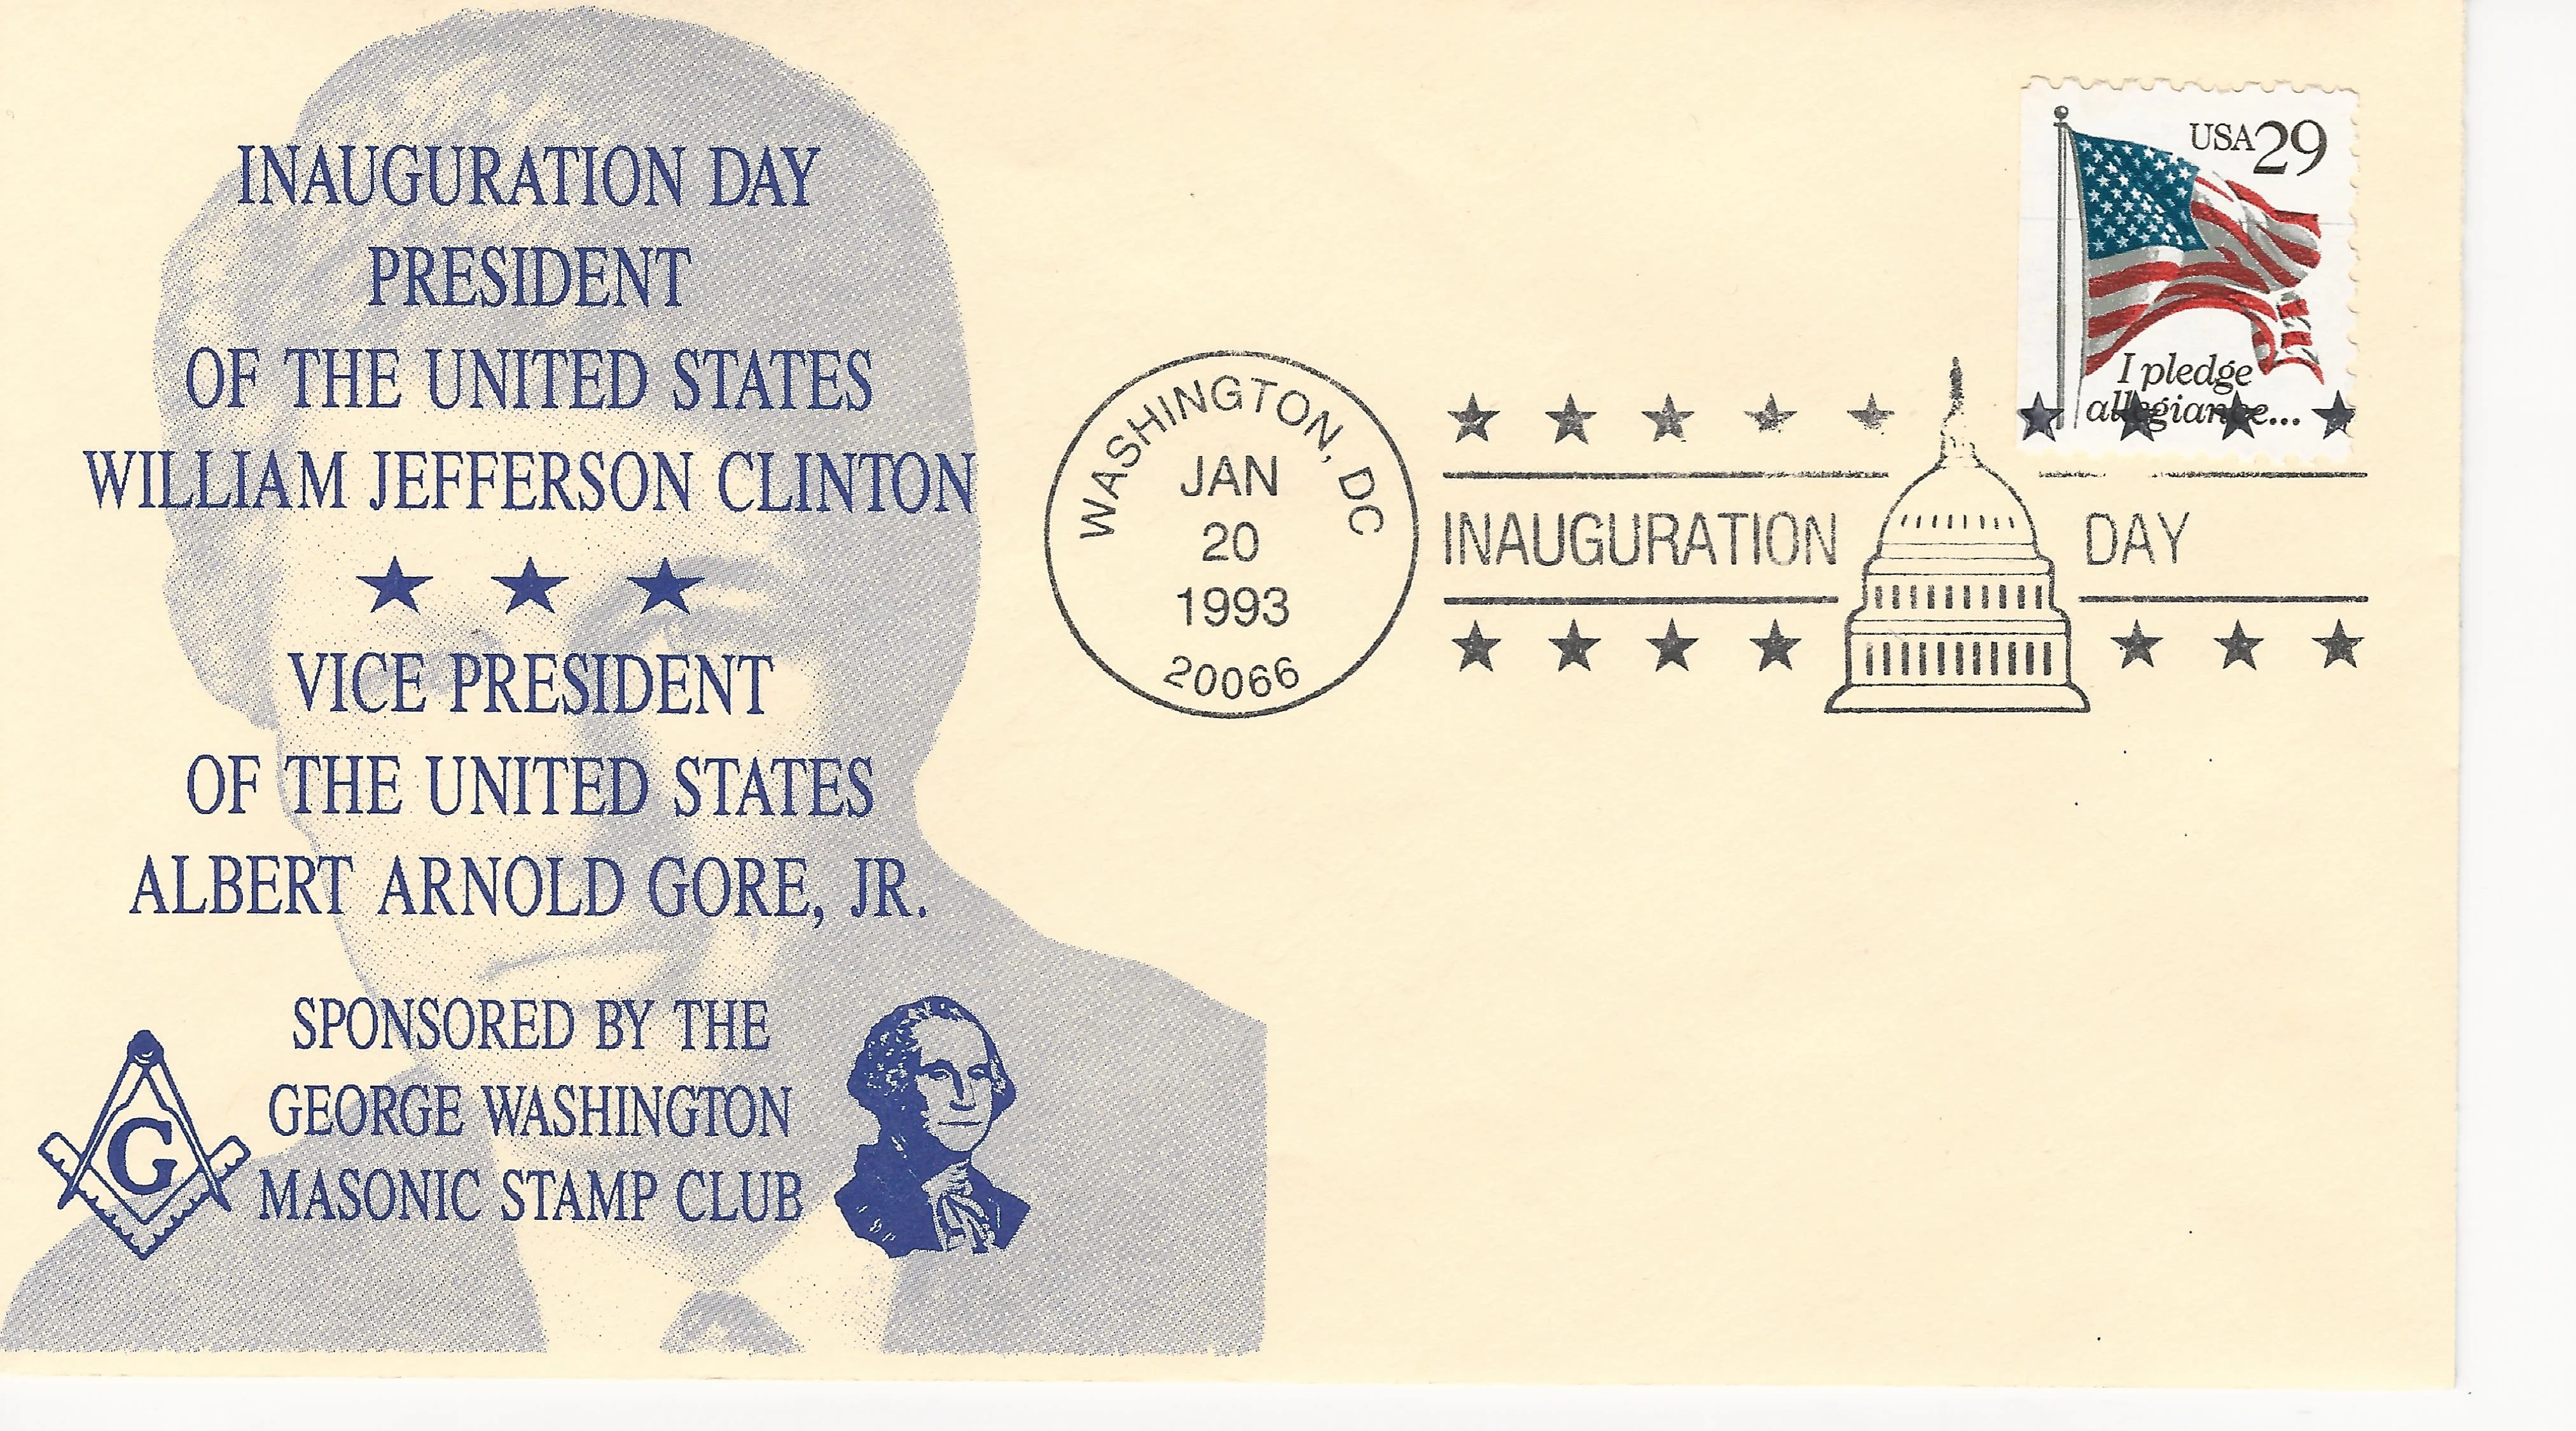 INAUGURATION DAY
PRESIDENT
OF THE UNITED STATES
WILLIAM JEFFERSON CLINTON
VICE PRESIDENT
OF THE UNITED STATES
ALBERT ARNOLD GORE, JR.
SPONSORED BY THE
GEORGE WASHINGTON
MASONIC STAMP CLUB
G
WASHINGTON, DC
JAN
20
1993
20066
INAUGURATION DAY
USA 29
I pledge
allegiance...